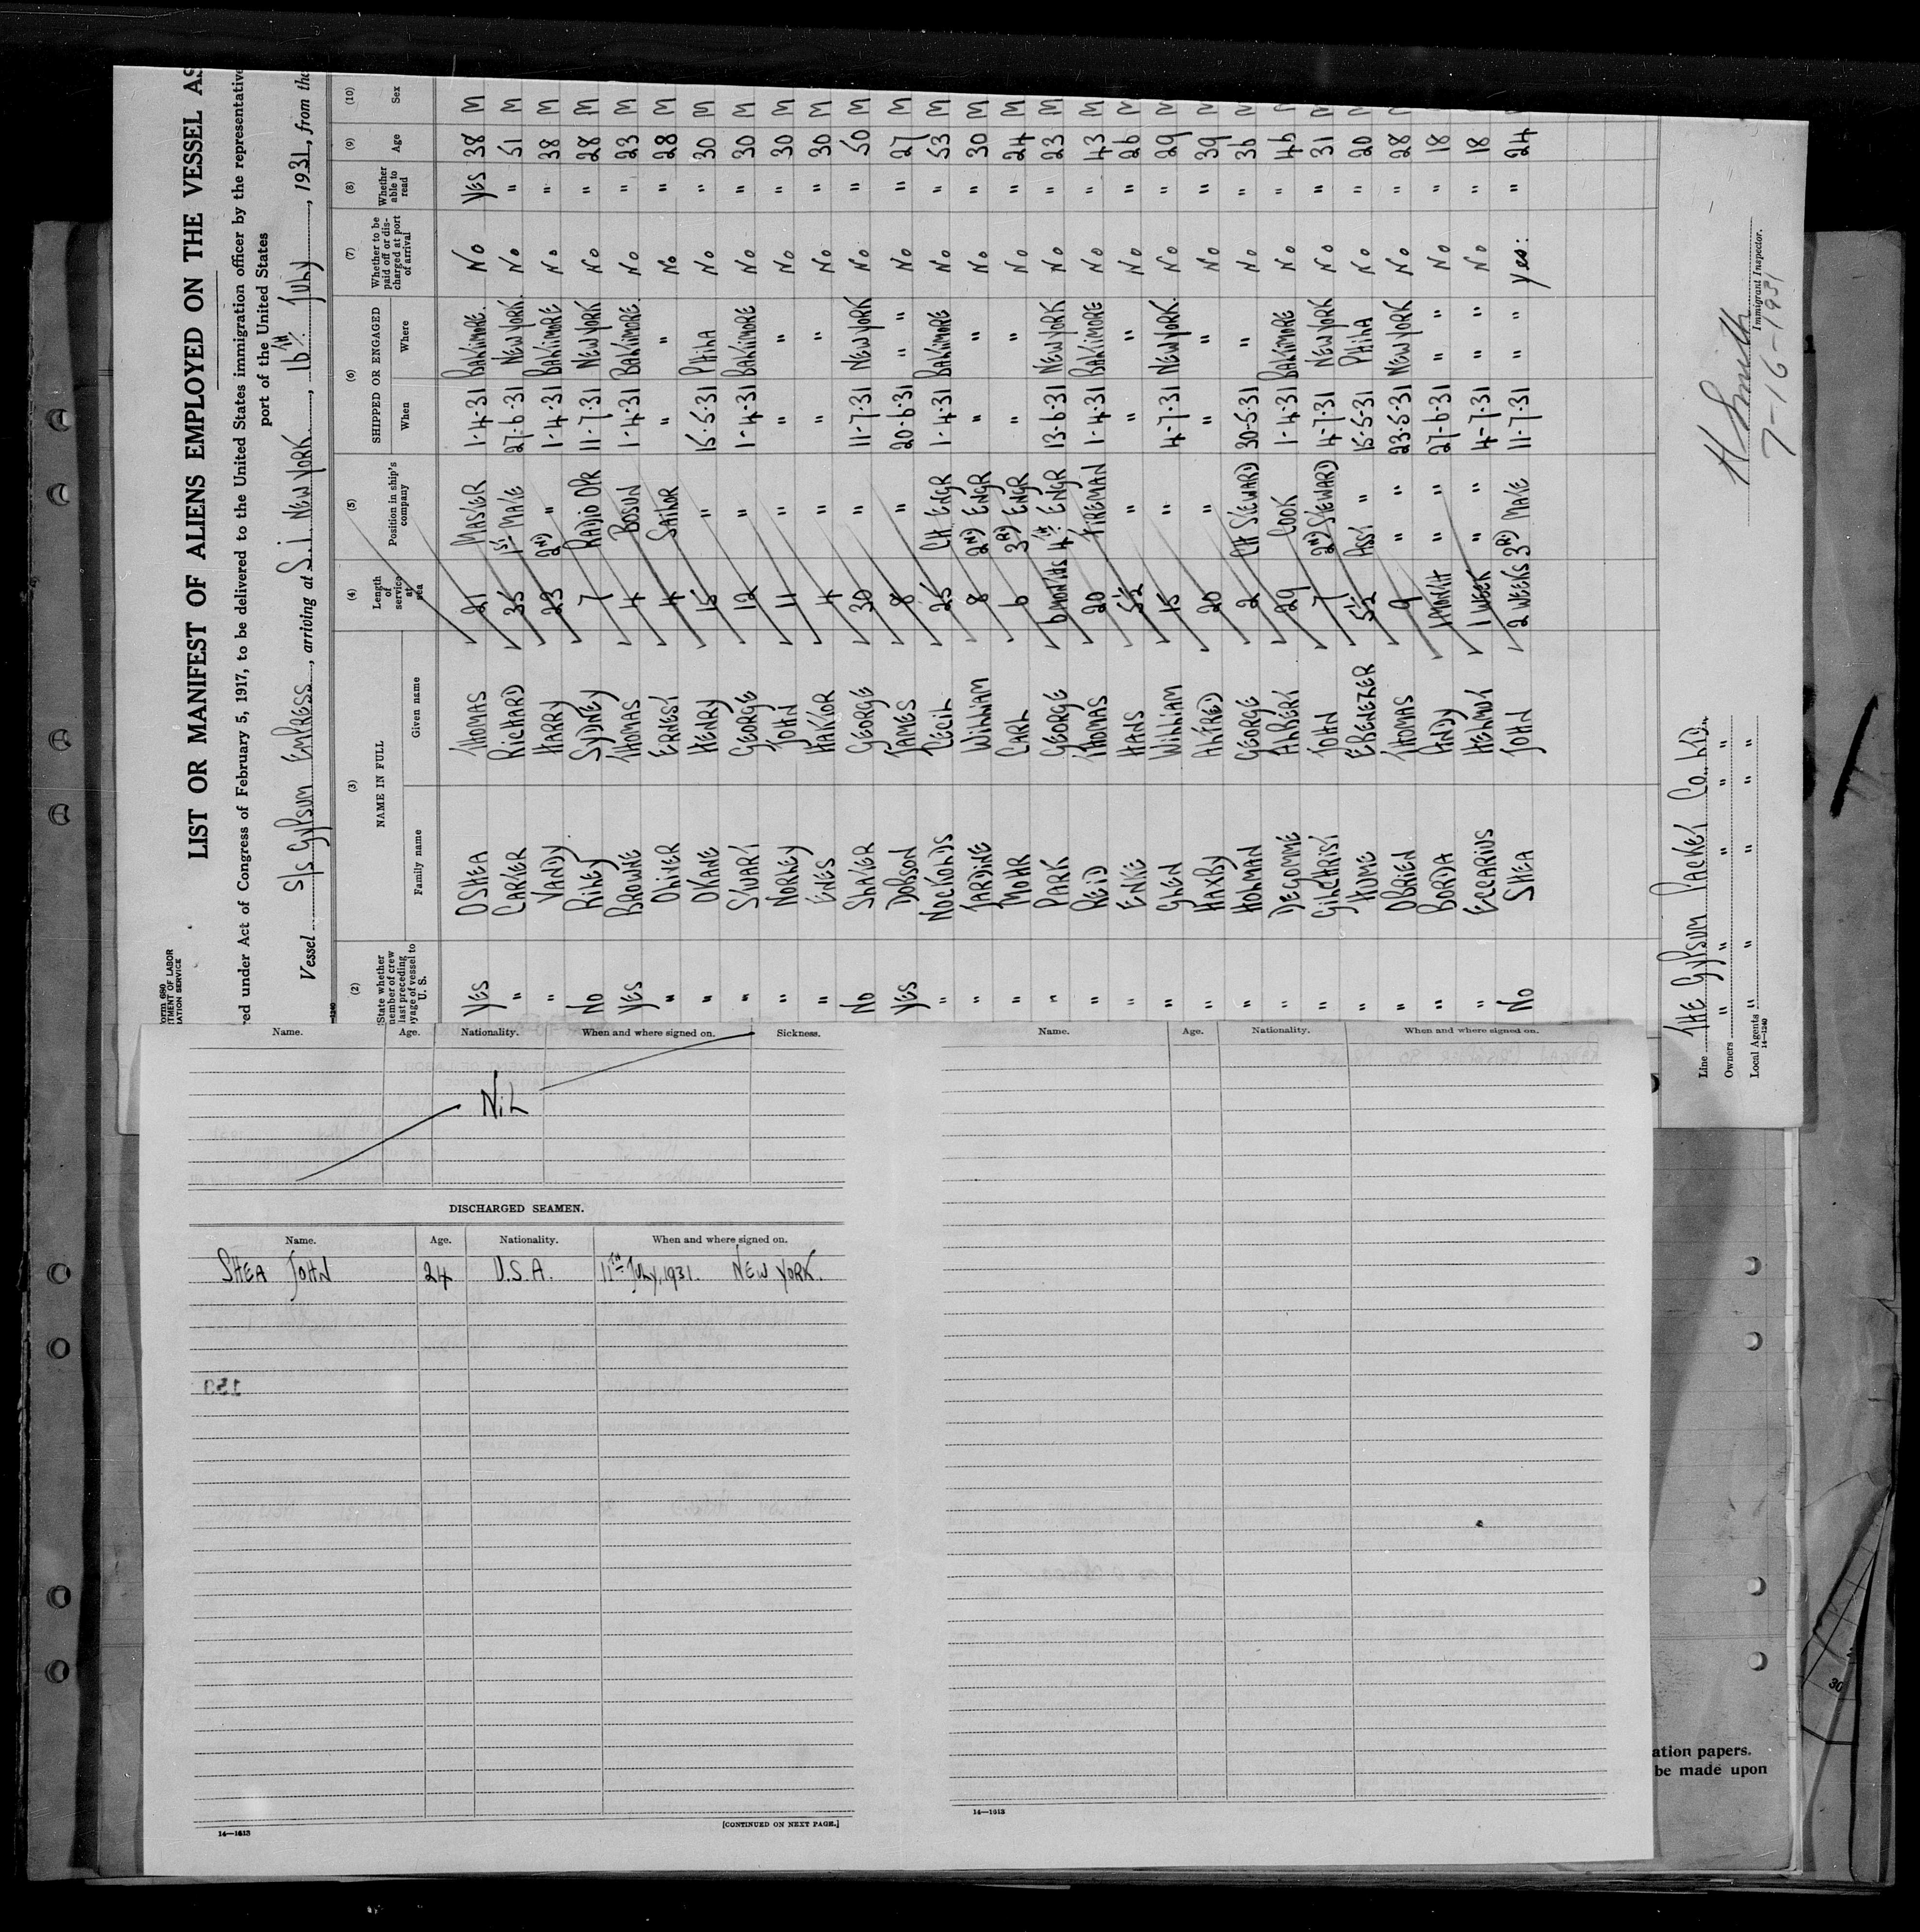 Form 680
LIST OR MANIFEST OF ALIENS EMPLOYED ON THE VESSEL AS
red under Act of Congress of February 5, 1917, to be delivered to the United States immigration officer by the representative
port of the United States
Vessel S/S GYPSUM EMPRESS, arriving at S.I. NEW YORK, 16TH JULY, 1931, from the
(2) (3) (4) (5) (6) (7) (8) (9) (10)
State whether member of crew last preceding voyage of vessel to U. S. NAME IN FULL Family name Given name Length of service at sea Position in ship's company SHIPPED OR ENGAGED When Where Whether to be paid off or discharged at port of arrival Whether able to read Age Sex
YES OSHEA THOMAS 21 MASTER 1-4-31 BALTIMORE. NO YES 38 M
" CARTER RICHARD 35 1ST MATE 27-6-31 NEW YORK. NO " 51 M
" VANDY HARRY 23 2ND " 1-4-31 BALTIMORE NO " 38 M
NO RILEY SYDNEY 7 RADIO OPR 11-7-31 NEW YORK NO " 28 M
YES BROWNE THOMAS 4 BOSUN 1-4-31 BALTIMORE. NO " 23 M
" OLIVER ERNEST 4 SAILOR " " NO " 28 M
" OKANE HENRY 15 " 15-5-31 PHILA NO " 30 M
" STUART GEORGE 12 " 1-4-31 BALTIMORE NO " 30 M
" NORLEY JOHN 11 " " " NO " 30 M
" ENES HAKTOR 4 " " " NO " 30 M
NO SLATER GEORGE 30 " 11-7-31 NEW YORK NO " 50 M
YES DOBSON JAMES 8 " 20-6-31 " " NO " 27 M
" NOCKOLDS CECIL 25 CH ENGR 1-4-31 BALTIMORE NO " 53 M
" JARDINE WILLIAM 8 2ND ENGR " " NO " 30 M
" MOHR CARL 6 3RD ENGR " " NO " 24 M
" PARK GEORGE 6 MONTHS 4TH ENGR 13-6-31 NEW YORK NO " 23 M
" REID THOMAS 20 FIREMAN 1-4-31 BALTIMORE NO " 43 M
" ENKE HANS 5½ " " " NO " 26 M
" GLEN WILLIAM 15 " 4-7-31 NEW YORK. NO " 29 M
" HAXBY ALFRED 20 " " " NO " 39 M
" HOLMAN GEORGE 2 CH STEWARD 30-5-31 " NO " 36 M
" DECOMME ALBERT 29 COOK 1-4-31 BALTIMORE NO " 46 M
" GILCHRIST JOHN 7 2ND STEWARD 4-7-31 NEW YORK NO " 31 M
" HUME EBENEZER 5½ ASST " 15-5-31 PHILA NO " 20 M
" OBRIEN THOMAS 9 " " 23-5-31 NEW YORK NO " 28 M
" BORDA ANDY 1 MONTH " " 27-6-31 " " NO " 18 M
" ECCARIUS HELMUT 1 WEEK " " 4-7-31 " " NO " 18 M
NO SHEA JOHN 2 WEEKS 3RD MATE 11-7-31 " " Yes. " 24 M
Line THE GYPSUM PACKET CO. LTD.
Owners " " " " "
Local Agents " " " " "
14—1240
H Smith
Immigrant Inspector.
7-16-1931
Name. Age. Nationality. When and where signed on. Sickness.
NIL
DISCHARGED SEAMEN.
Name. Age. Nationality. When and where signed on.
SHEA JOHN 24 U.S.A. 11TH JULY, 1931. NEW YORK.
14—1613
[CONTINUED ON NEXT PAGE.]
Name. Age. Nationality. When and where signed on.
14—1613
30
ation papers.
be made upon